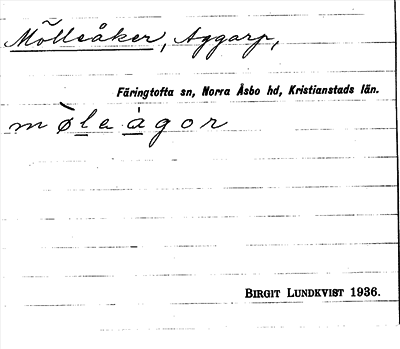 Möllsåker, Aggarp,
Färingtofta sn, Norra Åsbo hd, Kristianstads län.
mø̀la ȧgor
BIRGIT LUNDKVIST 1936.